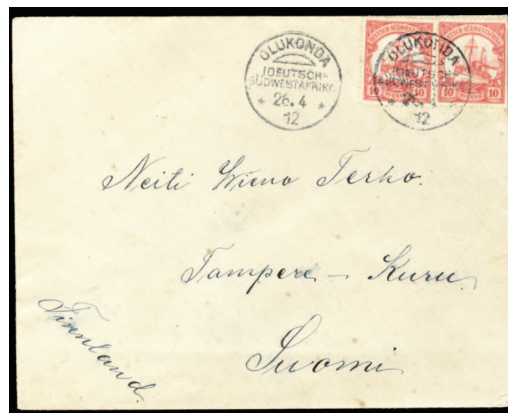 OLUKONDA
(DEUTSCH-
SÜDWESTAFRIKA
* 26.4 *
12
OLUKONDA
(DEUTSCH-
* 26.4 *
12
10 10
Neiti Wieno Terho.
Tampere – Kuru
Suomi
Finnland.